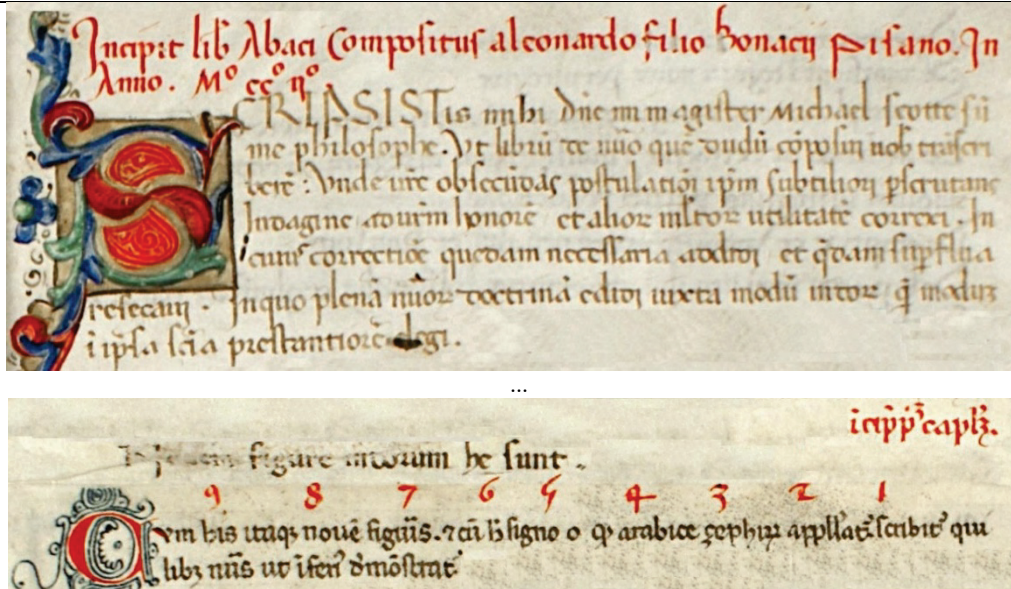 Incipit lib̄ Abaci Compositus a leonardo filio bonacij Pisano. In
Anno. Mº ccº ijº.
SCRIPSISTis mihi dn̄e mi magister Michael scotte sū
me philosophe. Vt librū de nūo quē dudū cōposui uob̄ trāscri
berē: Vnde ur̄e obsecūdās postulatiōi ip̄m subtiliori p̄scrutans
Indagine ad ur̄m honorē et alioꝝ ml̄toꝝ utilitatē correxi. In
cuius correctiōe quedam necessaria addidi et q̄dam sup̄flua
resecaui. In quo plenā nūoꝝ doctrinā edidi iuxta modū indoꝝ q̄ modū
i ip̄sa sciā prestantiorē elegi.
...
icip̄ p̄ capl̄ꝫ.
figure indorum he sunt.
9 8 7 6 5 4 3 2 1
Cvm his itaqꝫ nouē figuris. ⁊ cū h̄ signo 0 qꝫ arabice zephirꝝ appll̄at̄ scribit̄ qui
libꝫ nūs ut īferi᷑ dēmōstrat̄